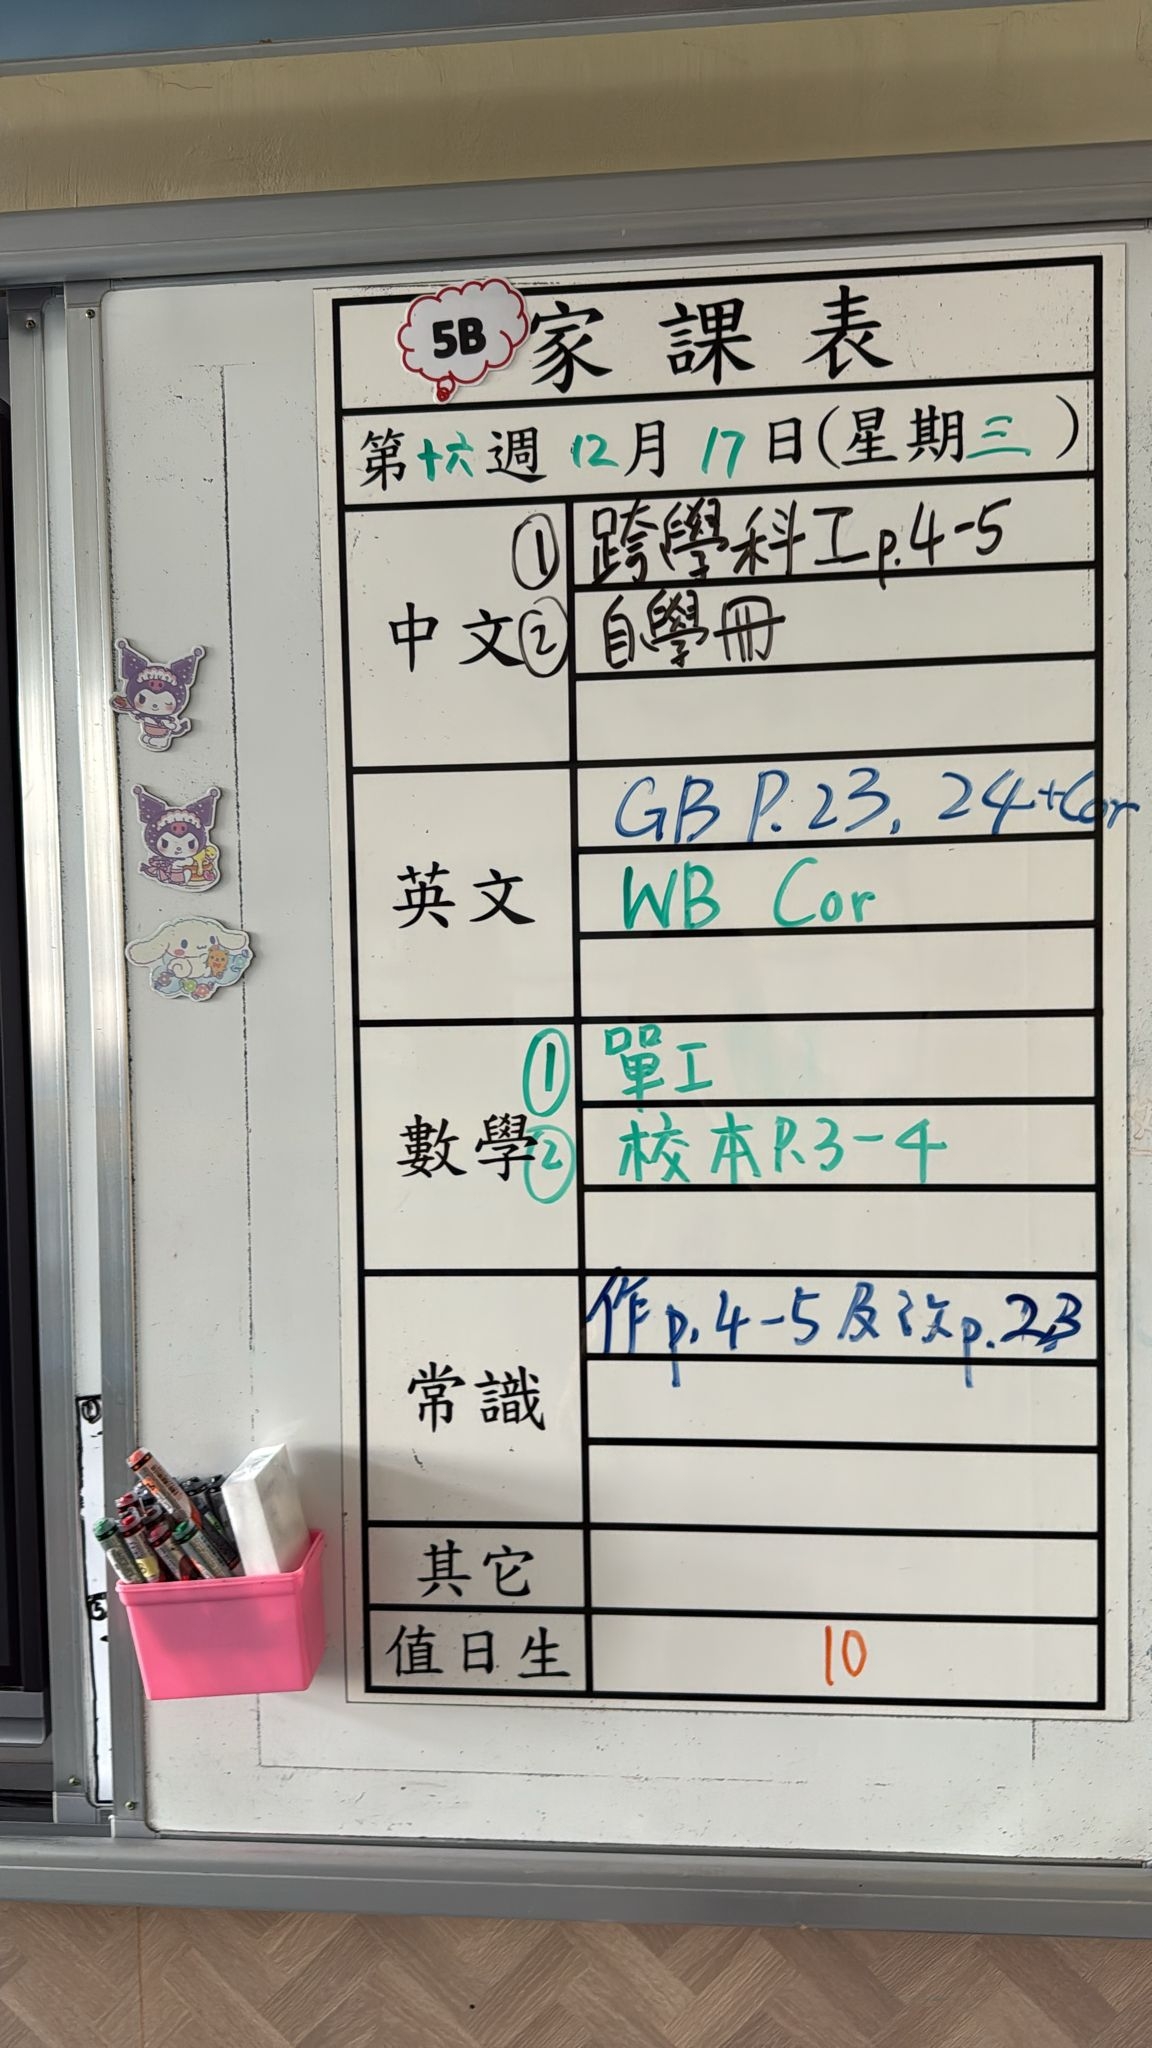 5B 家課表
第十六週 12月17日(星期三)
中文
① 跨學科工p.4-5
② 自學冊
英文
GB P.23, 24+Cor
WB Cor
數學
① 單工
② 校本P.3-4
常識
作p.4-5及改p.2,3
其它
值日生
10